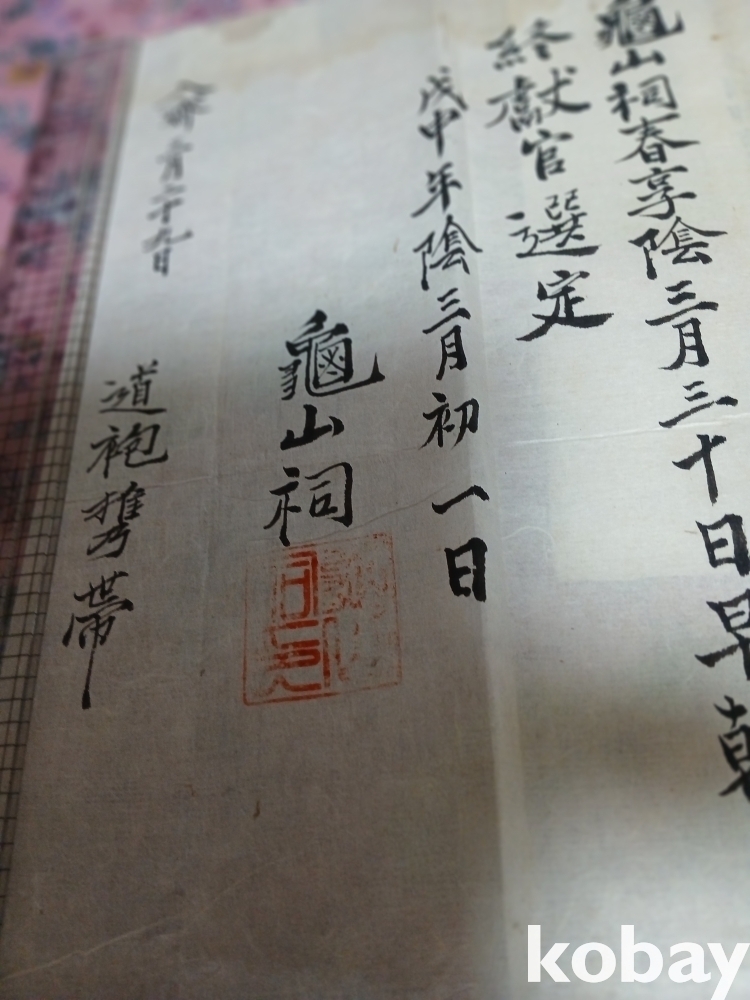 龜山祠春享陰三月三十日早朝
終獻官選定
戊申年陰三月初一日
龜山祠
入齊 三月二十九日
道袍携帶
kobay